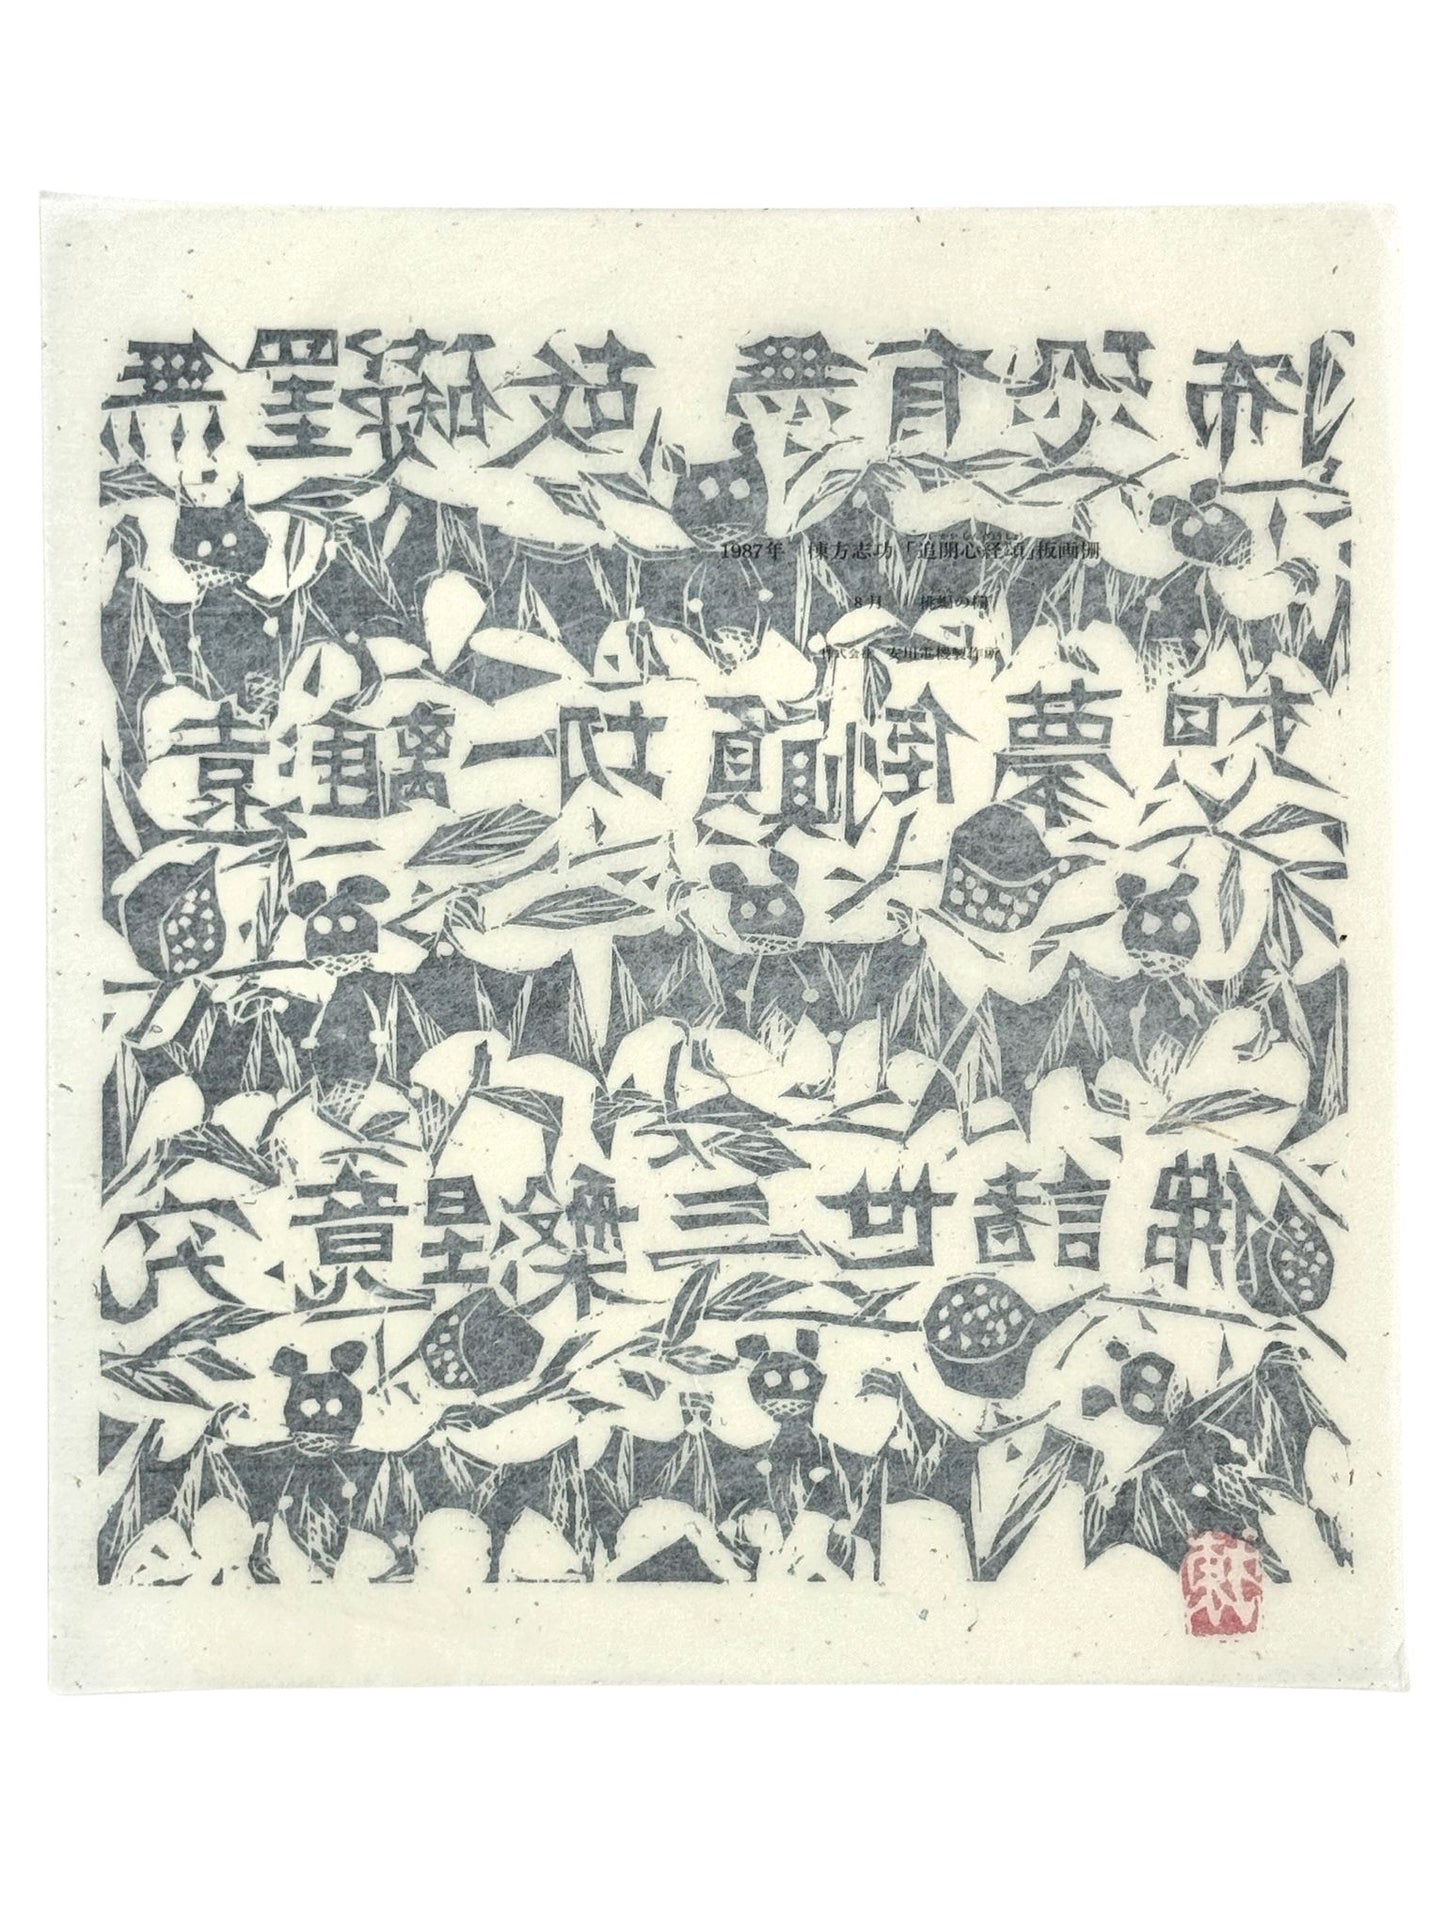 無罣礙故無有恐怖
1987年 棟方志功「追開心経頌」板画柵
8月 の柵
株式会社 安川電機製作所
遠離一切顛倒夢想
究竟涅槃三世諸佛